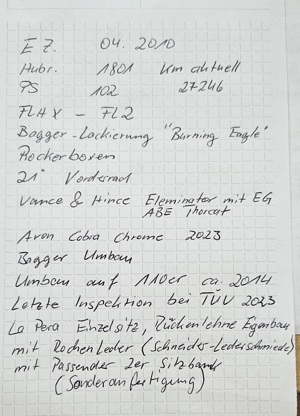 EZ. 04. 2010
Hubr. 1801 km aktuell
PS 102 27246
FLHX - FL2
Bagger-Lackierung "Burning Eagle"
Rockerboxen
21" Vorderrad
Vance & Hince Eleminator mit EG
ABE Thorcat
Avon Cobra Chrome 2023
Bagger Umbau
Umbau auf 110er ca. 2014
Letzte Inspektion bei TÜV 2023
La Pera Einzelsitz, Rückenlehne Eigenbau
mit Rochenleder (Schneider-Lederschmiede)
mit Passender 2er Sitzbank
(Sonderanfertigung)